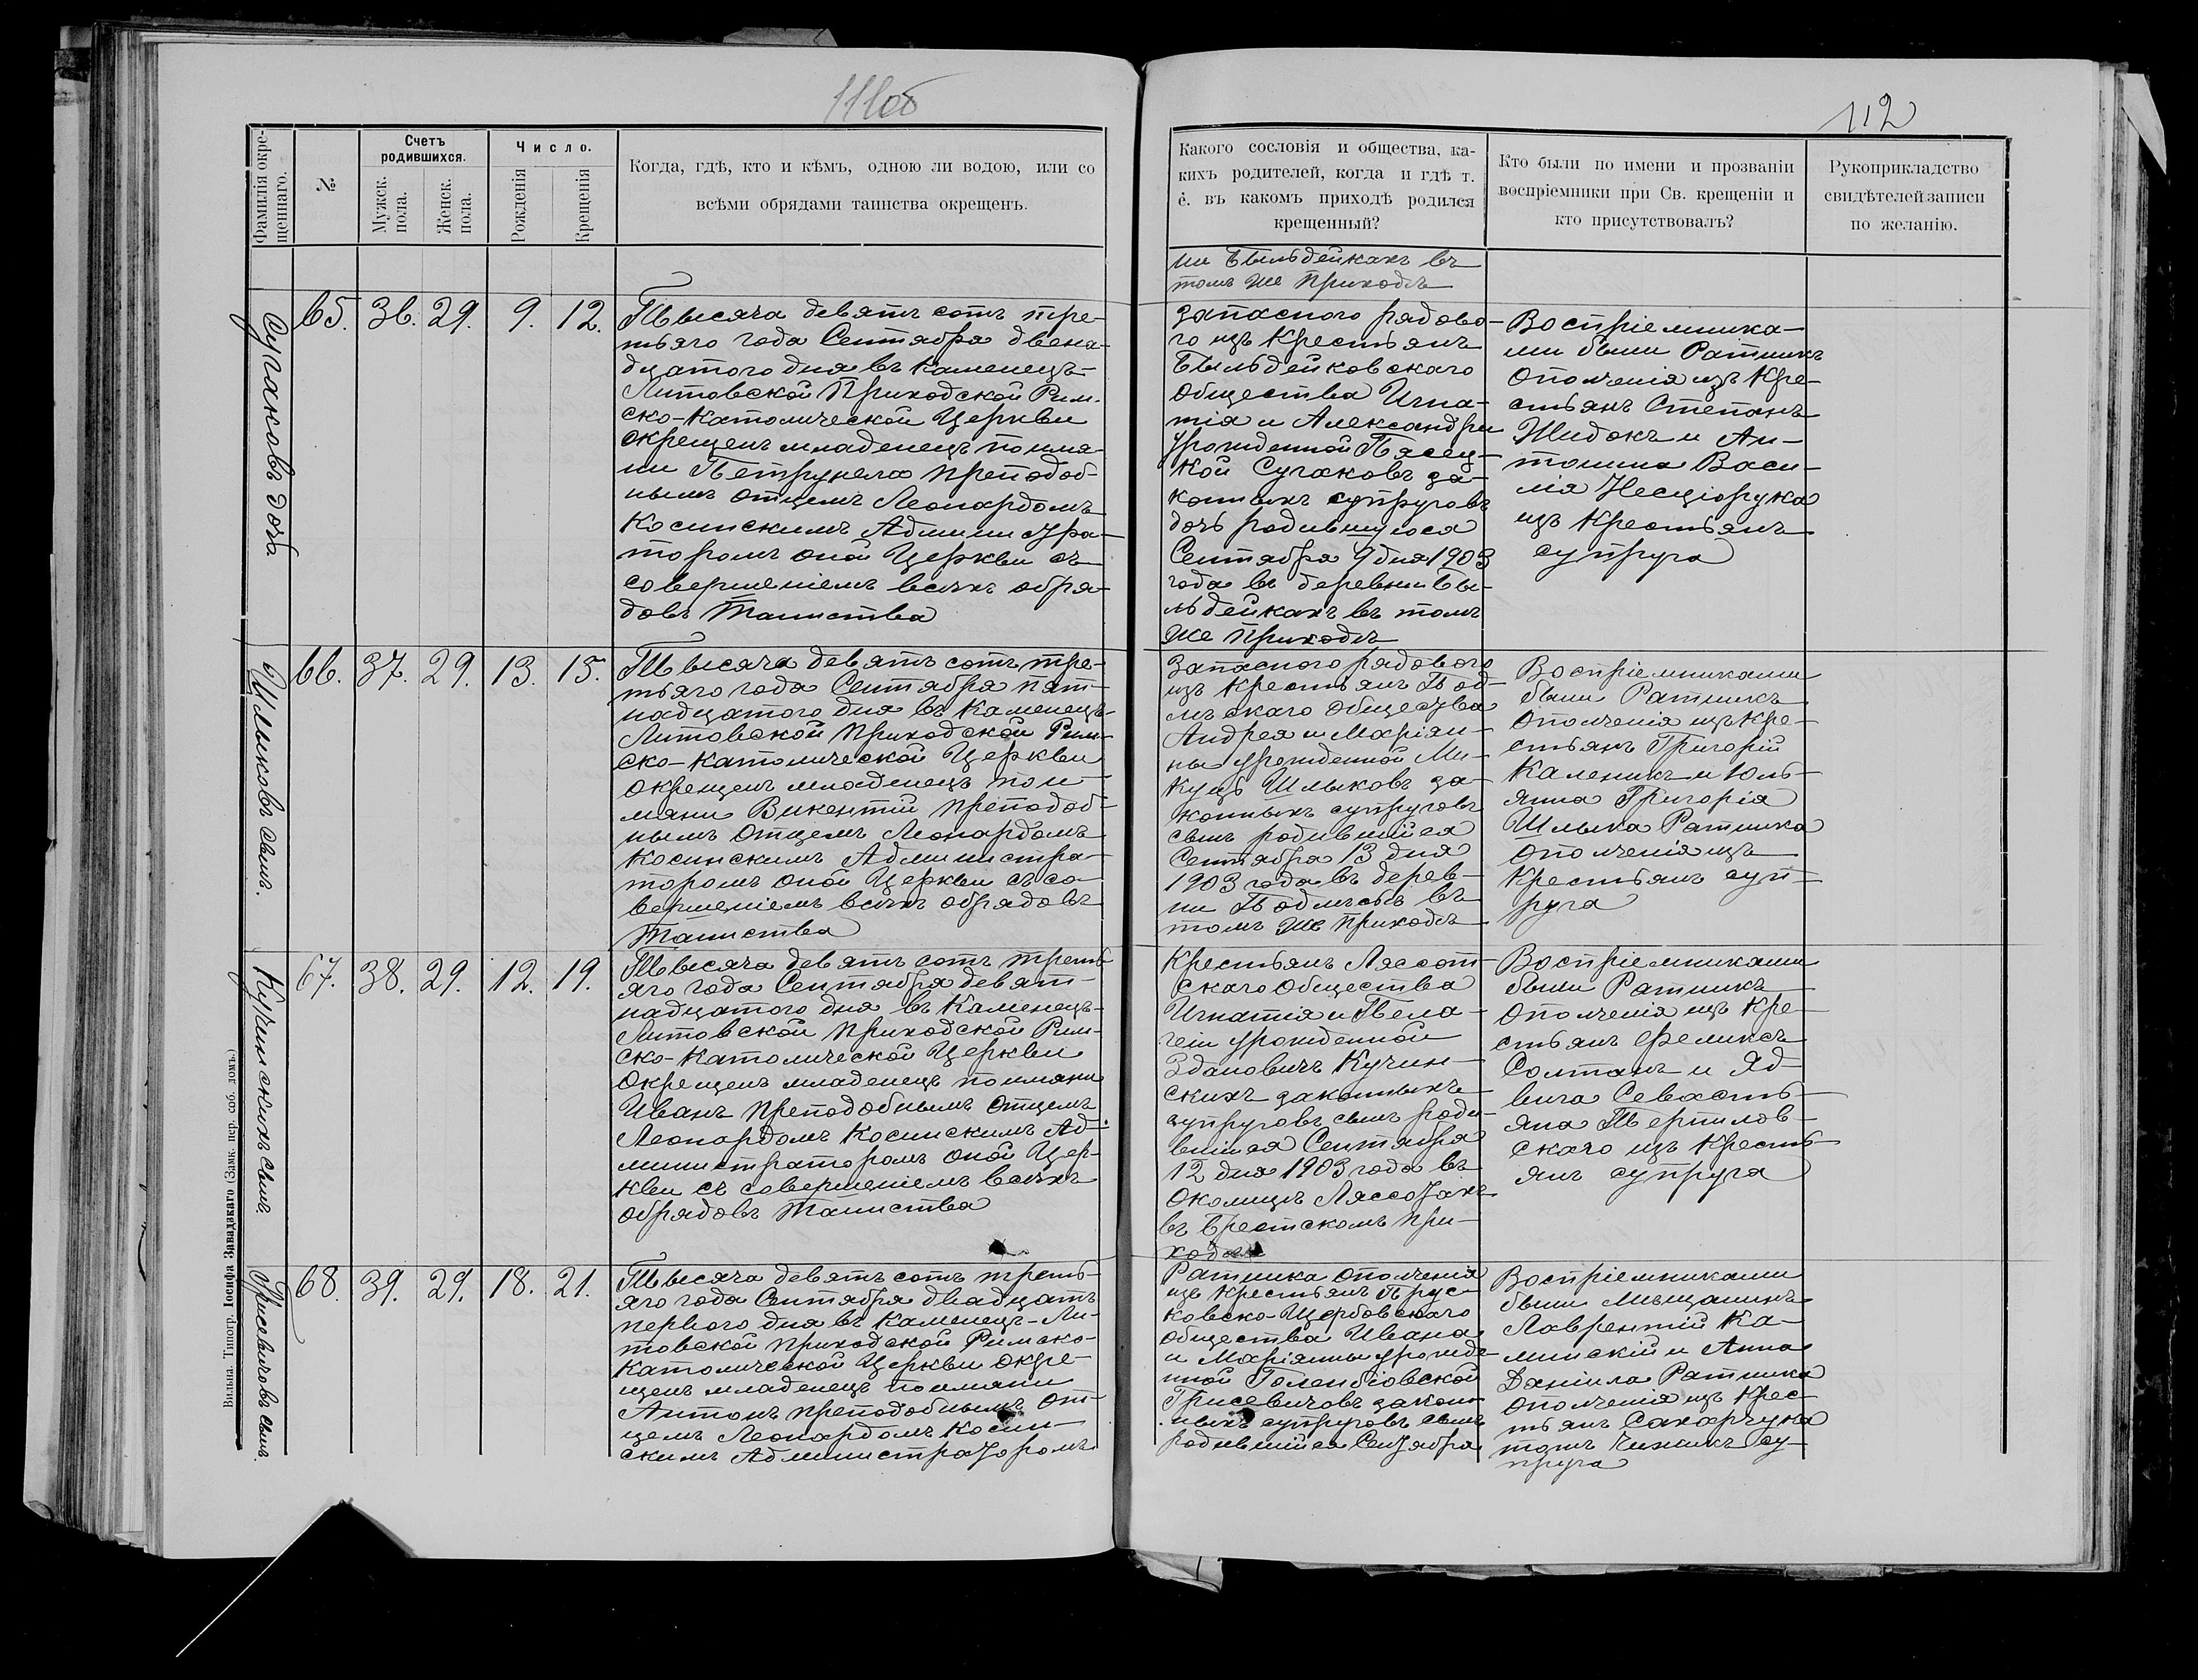 111об
112
Фамилія окре-
щеннаго.
№
Счетъ
родившихся.
Мужск.
пола.
Женск.
пола.
Число.
Рожденія
Крещенія
Когда, гдѣ, кто и кѣмъ, одною ли водою, или со
всѣми обрядами таинства окрещенъ.
Какого сословія и общества, ка-
кихъ родителей, когда и гдѣ т.
е. въ какомъ приходѣ родился
крещенный?
Кто были по имени и прозваніи
воспріемники при Св. крещеніи и
кто присутствовалъ?
Рукоприкладство
свидѣтелей записи
по желанію.
ни Быльдейкахъ въ
томъ же приходѣ
Сугаковъ дочь
65. 36. 29. 9. 12.
Тысяча девятьсотъ тре-
тьяго года Сентября двена-
дцатого дня въ Каменецъ-
Литовской Приходской Рим-
ско-Католической Церкви
окрещенъ младенецъ по имя-
ни Петрунеля преподоб-
нымъ отцемъ Леонардомъ
Косинскимъ Админитра-
торомъ оной Церкви съ
совершеніемъ всѣхъ обря-
довъ Таинства
запасного рядово-
го изъ крестьянъ
Быльдейковскаго
Общества Игна-
тія и Александры
урожденной Пясец-
кой Сугаковъ за-
конныхъ супруговъ
дочь родившуюся
Сентября 9 дня 1903
года въ деревни Бы-
льдейкахъ въ томъ
же приходѣ
Воспріемника-
ми были Ратникъ
Ополченія изъ кре-
стьянъ Степанъ
Жидокъ и Ан-
тонина Васи-
лія Несціорука
изъ крестьянъ
супруга
Шлыковъ сынъ.
66. 37. 29. 13. 15.
Тысяча девятьсотъ тре-
тьяго года Сентября пят-
надцатого дня въ Каменецъ-
Литовской Приходской Рим-
ско-Католической Церкви
окрещенъ младенецъ по и-
мяни Викентій преподоб-
нымъ отцемъ Леонардомъ
Косинскимъ Администра-
торомъ оной Церкви съ со-
вершеніемъ всѣхъ обрядовъ
Таинства
Запасного рядового
изъ крестьянъ Под-
лѣскаго общества
Андрея и Маріян-
ны урожденной Ми-
куць Шлыковъ за-
конныхъ супруговъ
сынъ родившійся
Сентября 13 дня
1903 года въ дерев-
ни Подлѣсьѣ въ
томъ же приходѣ
Воспріемниками
были Ратникъ
Ополченія изъ кре-
стьянъ Григорій
Каленикъ и Юль-
янна Григорія
Шлыка Ратника
Ополченія изъ
крестьянъ суп-
руга
Кучинскихъ сынъ.
67. 38. 29. 12. 19.
Тысяча девятьсотъ треть-
яго года Сентября девят-
надцатого дня въ Каменецъ-
Литовской Приходской Рим-
ско-Католической Церкви
Окрещенъ младенецъ по имяни
Иванъ преподобнымъ отцемъ
Леонардомъ Косинскимъ Ад-
министраторомъ оной Цер-
кви съ совершеніемъ всѣхъ
обрядовъ таинства
Крестьянъ Лясот-
скаго Общества
Игнатія и Пела-
геи урожденной
Здановичъ Кучин-
скихъ законныхъ
супруговъ сынъ роди-
вшійся Сентября
12 дня 1903 года въ
околицѣ Лясcотахъ
въ Брестскомъ при-
ходѣ
Воспріемниками
были Ратникъ
Ополченія изъ кре-
стьянъ Феликсъ
Солтанъ и Яд-
вига Севасть-
яна Тертилов-
скаго изъ кресть-
янъ супруга
Грисевичовъ сынъ.
68. 39. 29. 18. 21.
Тысяча девятьсотъ треть-
яго года Сентября двадцать
перваго дня въ Каменецъ-Ли-
товской приходской Римско-
Католической Церкви окре-
щенъ младенецъ по имяни
Антонъ преподобнымъ от-
цемъ Леонардомъ Косин-
скимъ Администраторомъ
Ратника ополченія
изъ крестьянъ Прус-
ковско-Щербовскаго
общества Ивана
и Маріянны урожде-
нной Голембіовской
Грисевичовъ закон-
ныхъ супруговъ сынъ
родившійся Сентября
Воспріемниками
были Мѣщанинъ
Лаврентій Ка-
минскій и Анна
Даніила Ратника
ополченія изъ крес-
тьянъ Сахарчука
супруга
Вильна. Типогр. Іосифа Завадзкаго (Замк. пер. соб. домъ.)